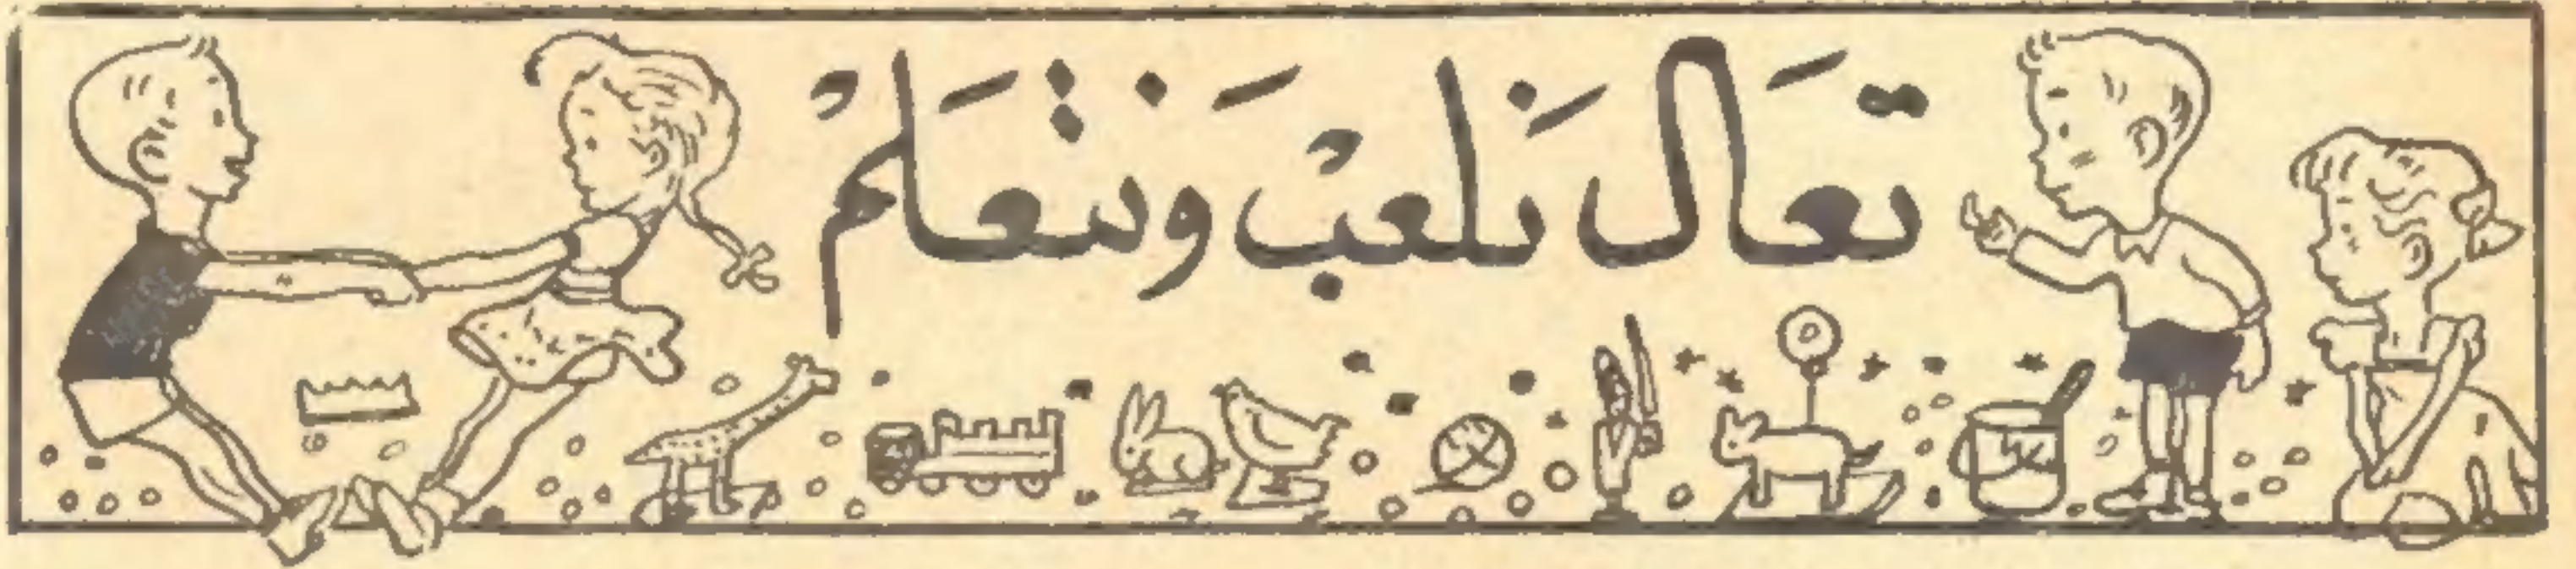 تعَال نَلعبْ وَنتْعَلمْ